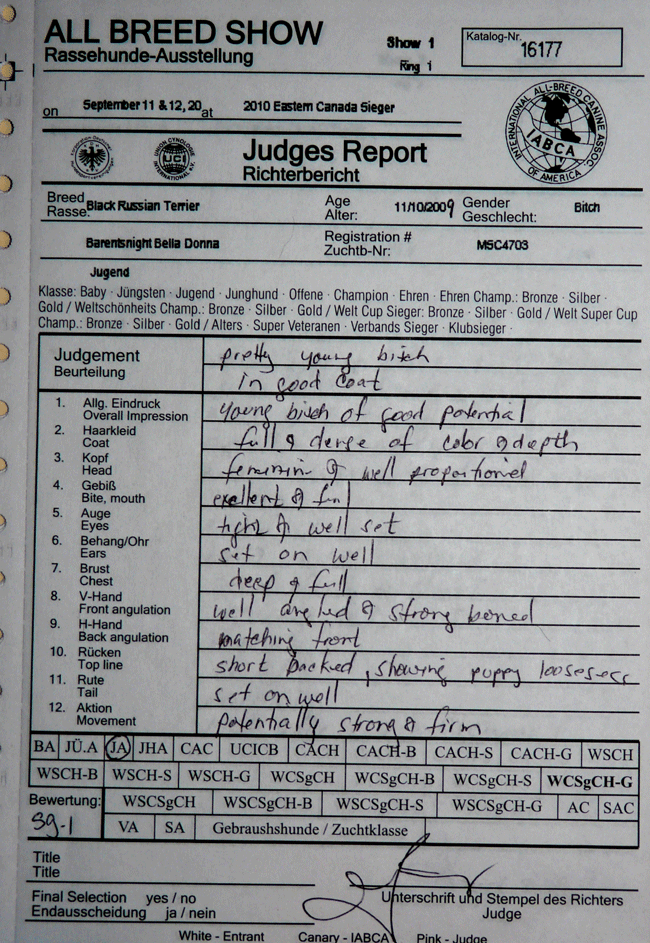 ALL BREED SHOW
Rassehunde-Ausstellung
Show 1
Ring 1
Katalog-Nr.
16177
on September 11 & 12, 20 at 2010 Eastern Canada Sieger
INTERNATIONAL ALL-BREED CANINE ASSOC. OF AMERICA
IABCA
UCI
Judges Report
Richterbericht
Breed
Rasse: Black Russian Terrier
Age
Alter: 11/10/2009
Gender
Geschlecht: Bitch
Barentsnight Bella Donna
Registration #
Zuchtb-Nr: M5C4703
Jugend
Klasse: Baby · Jüngsten · Jugend · Junghund · Offene · Champion · Ehren · Ehren Champ.: Bronze · Silber ·
Gold / Weltschönheits Champ.: Bronze · Silber · Gold / Welt Cup Sieger: Bronze · Silber · Gold / Welt Super Cup
Champ.: Bronze · Silber · Gold / Alters · Super Veteranen · Verbands Sieger · Klubsieger ·
Judgement
Beurteilung
pretty young bitch
in good coat
1. Allg. Eindruck
Overall Impression
young bitch of good potential
2. Haarkleid
Coat
full & dense of color & depth
3. Kopf
Head
feminin & well proportioned
4. Gebiß
Bite, mouth
exellent & full
5. Auge
Eyes
tight & well set
6. Behang/Ohr
Ears
set on well
7. Brust
Chest
deep & full
8. V-Hand
Front angulation
well angled & strong boned
9. H-Hand
Back angulation
matching front
10. Rücken
Top line
short backed, showing puppy looseness
11. Rute
Tail
set on well
12. Aktion
Movement
potentially strong & firm
BA JÜ.A JA JHA CAC UCICB CACH CACH-B CACH-S CACH-G WSCH
WSCH-B WSCH-S WSCH-G WCSgCH WCSgCH-B WCSgCH-S WCSgCH-G
Bewertung: WSCSgCH WSCSgCH-B WSCSgCH-S WSCSgCH-G AC SAC
SG-1 VA SA Gebraushshunde / Zuchtklasse
Title
Title
Final Selection yes / no
Endausscheidung ja / nein
Unterschrift und Stempel des Richters
Judge
White - Entrant Canary - IABCA Pink - Judge